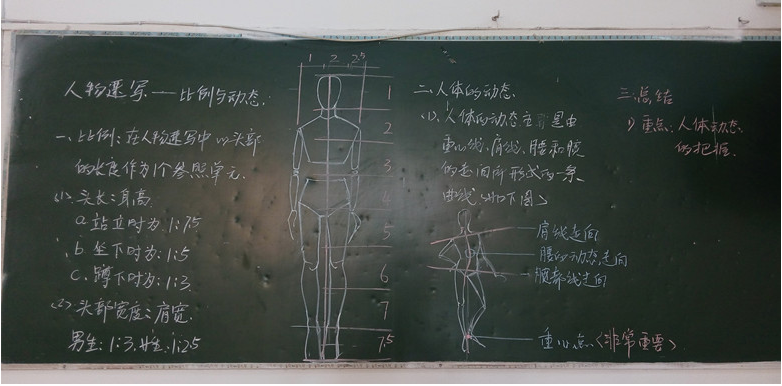 人物速写——比例与动态.
一、比例:在人物速写中以头部
的长度作为1个参照单元.
(1).头长:身高
a.站立时为1:7.5
b.坐下时为:1:5
c.蹲下时为:1:3
(2).头部宽度:肩宽.
男生:1:3.女生:1:2.5
1 2 2.5
1
2
3
4
5
6
7
7.5
二、人体的动态.
(1).人体的动态主要是由
重心线、肩线、腰和髋
的走向所形成的一条
曲线.(如下图)
肩线走向
腰的动态走向
腿部线走向
重心点.(非常重要)
三.总结
1)重点:人体动态
的把握.